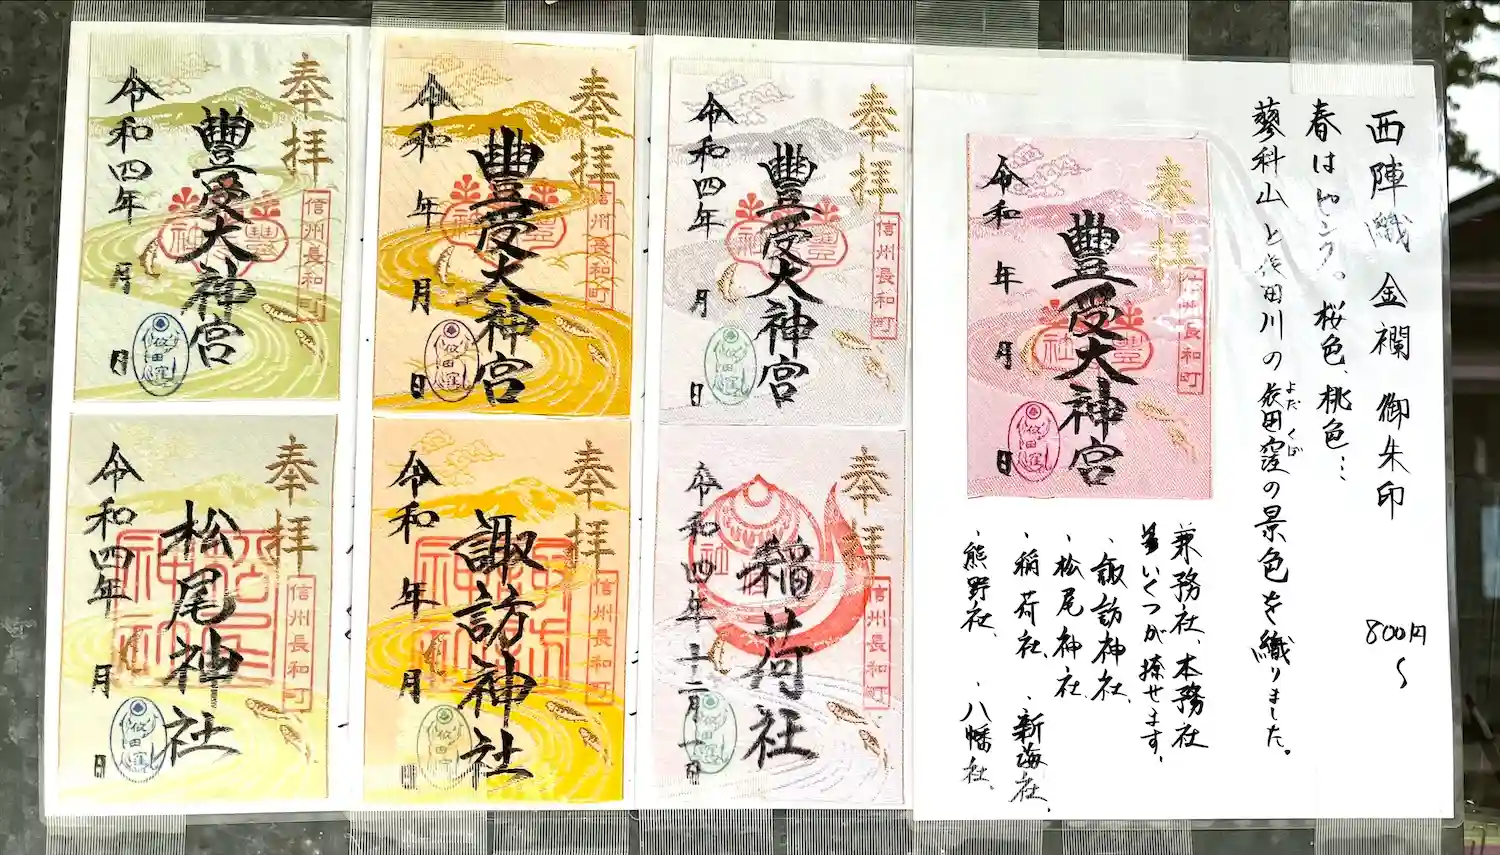 西陣織 金襴 御朱印 800円〜
春はピンク。桜色、桃色…
蓼科山と依田川の依田窪の景色を織りました。
よだくぼ
兼務社、本務社
いくつか捺せます。
・諏訪神社、
・松尾神社、
・稲荷社、 ・新海社、
・熊野社、 ・八幡社、
奉拝
信州長和町
豊受大神宮
令和 年 月 日
奉拝
信州長和町
豊受大神宮
令和四年 月 日
奉拝
信州長和町
豊受大神宮
令和 年 月 日
奉拝
信州長和町
豊受大神宮
令和四年 月 日
奉拝
信州長和町
稲荷社
令和四年十二月一日
奉拝
信州長和町
諏訪神社
令和 年 月 日
奉拝
信州長和町
松尾神社
令和四年 月 日